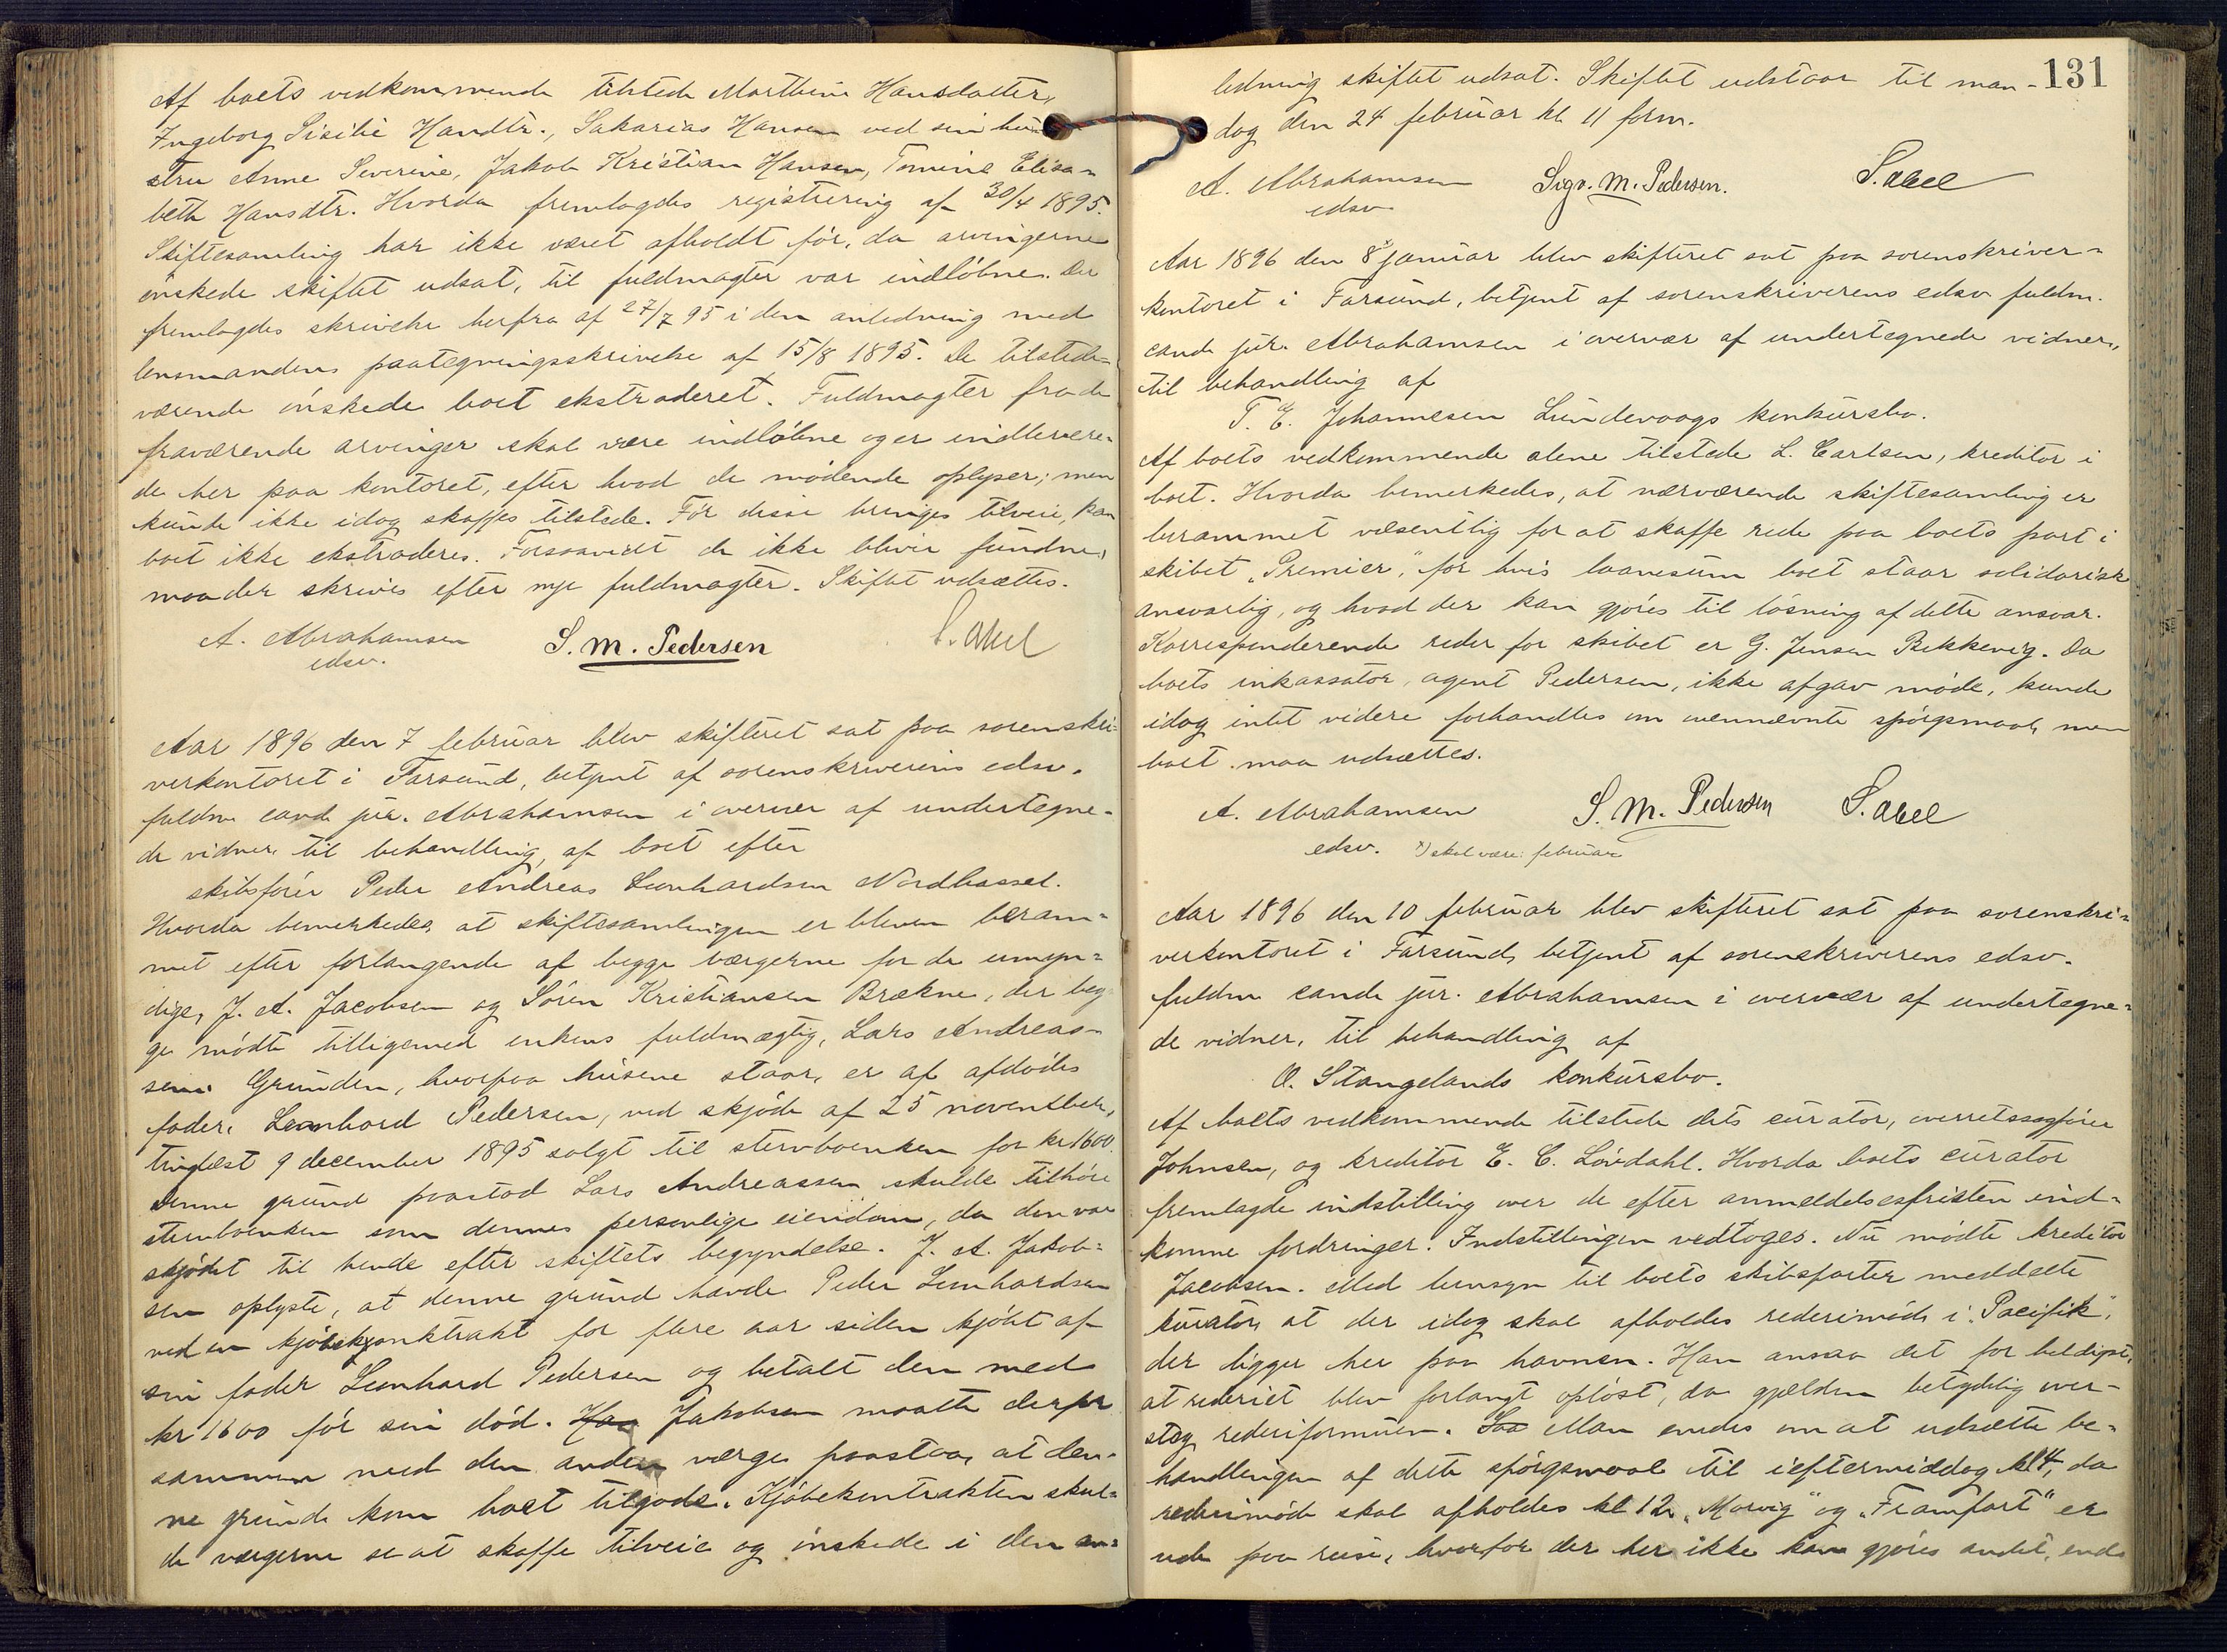 Af boets vedkommende tilstede Marthine Hansdatter,
Ingeborg Sisilie Handtr., Sakarias Hansen ved sin hu-
stru Anne Severine, Jakob Kristian Hansen, Tomine Elisa-
beth Hansdtr. Hvorda fremlagdes registrering af 30/4 1895.
Skiftesamling har ikke været afholdt før, da arvingerne
ønskede skiftet udsat, til fuldmagter var indløbne. Der
fremlagdes skrivelse herfra af 27/7 95 i den anledning med
lensmandens paategningsskrivelse af 15/8 1895. De tilstede-
værende ønskede boet ekstraderet. Fuldmagter fra de
fraværende arvinger skal være indløbne og er indlevere-
de her paa kontoret, efter hvad de mødende oplyser; men
kunde ikke idag skaffes tilstede. Før disse bringes tilveie, kan
boet ikke ekstraderes. Forsaavidt de ikke bliver fundne,
maa der skrives efter nye fuldmagter. Skiftet udsættes.
A. Abrahamsen S. M. Pedersen S. Abel
edsv.
Aar 1896 den 7 februar blev skifteret sat paa sorenskri-
verkontoret i Farsund, betjent af sorenskriverens edsv.
fuldm. cand. jur. Abrahamsen i overvær af undertegne-
de vidner, til behandling, af boet efter
skibsfører Peder Andreas Leonhardsen Nordhassel.
Hvorda bemerkedes, at skiftesamlingen er bleven beram-
met efter forlangende af begge værgerne for de umyn-
dige, J. A. Jacobsen og Søren Kristiansen Brækne, der beg-
ge mødte tilligemed enkens fuldmægtig, Lars Andreas-
sen. Grunden, hvorpaa husene staar, er af afdødes
fader, Leonhard Pedersen, ved skjøde af 25 november,
tinglæst 9 december 1895 solgt til stervboenken for kr 1600.
Denne grund paastod Lars Andreassen skulde tilhøre
stervboenken som dennes personlige eiendom, da den var
skjødet til hende efter skiftets begyndelse. J. A. Jakob-
sen oplyste, at denne grund havde Peder Leonhardsen
ved en kjøbekontrakt for flere aar siden kjøbt af
sin fader Leonhard Pedersen og betalt den med
kr 1600 før sin død. Han Jakobsen maatte derfor
sammen med den anden værge paastaa, at den-
ne grund kom boet tilgode. Kjøbekontrakten skul-
de værgerne se at skaffe tilveie og ønskede i den an-
131
ledning skiftet udsat. Skiftet udstaar til man-
dag den 24 februar kl. 11 form.
A. Abrahamsen Sigv. M. Pedersen. S. Abel
edsv.
Aar 1896 den 8 januar blev skifteret sat paa sorenskriver-
kontoret i Farsund, betjent af sorenskriverens edsv. fuldm.
cand. jur. Abrahamsen i overvær af undertegnede vidner,
til behandling af
T. E. Johannesen Lundevaags konkursbo.
Af boets vedkommende alene tilstede L. Carlsen, kreditor i
boet. Hvorda bemerkedes, at nærværende skiftesamling er
berammet væsentlig for at skaffe rede paa boets part i
skibet „Premier“, for hvis laanesum boet staar solidarisk
ansvarlig, og hvad der kan gjøres til løsning af dette ansvar.
Korresponderende reder for skibet er G. Jensen Bekkevig. Da
boets inkassator, agent Pedersen, ikke afgav møde, kunde
idag intet videre forhandles om ovennævnte spørgsmaal, men
boet maa udsættes.
A. Abrahamsen S. M. Pedersen S. Abel
edsv. x) skal være: februar
Aar 1896 den 10 februar blev skifteret sat paa sorenskri-
verkontoret i Farsund, betjent af sorenskriverens edsv.
fuldm. cand. jur. Abrahamsen i overvær af undertegne-
de vidner, til behandling af
O. Stangelands konkursbo.
Af boets vedkommende tilstede dets curator, overretssagfører
Johnsen, og kreditor E. C. Løvdahl. Hvorda boets curator
fremlagde indstilling over de efter anmeldelsesfristen ind-
komne fordringer. Indstillingen vedtoges. Nu mødte kreditor
Jacobsen. Med hensyn til boets skibsparter meddelte
kurator, at der idag skal afholdes rederimøde i „Pacifik“,
der ligger her paa havnen. Han ansaa det for heldigst,
at rederiet blev forlangt opløst, da gjælden betydelig over-
steg rederiformuen. Saa Man enedes om at udsætte be-
handlingen af dette spørgsmaal til ieftermiddag kl 4, da
rederimøde skal afholdes kl 12. „Marvig“ og „Framfart“ er
ude paa reise, hvorfor der her ikke kan gjøres andet, end